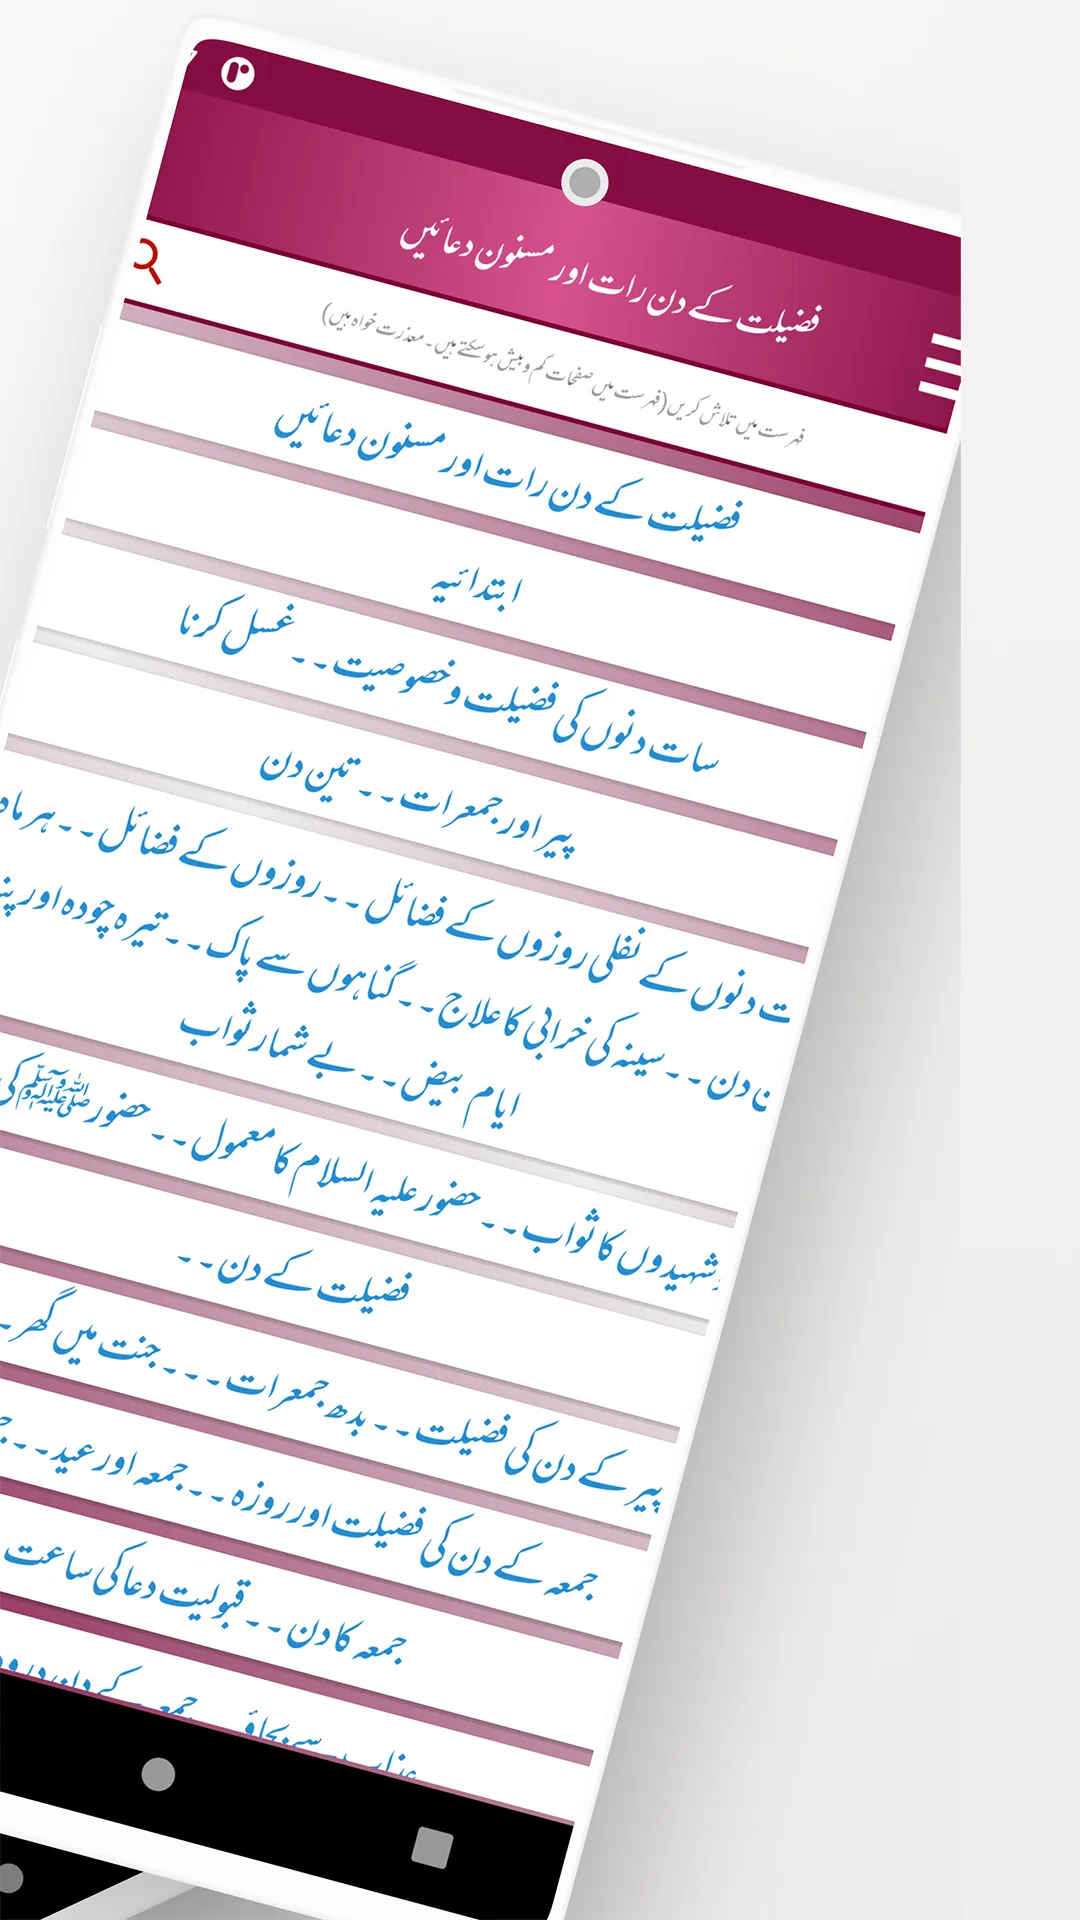 فضیلت کے دن رات اور مسنون دعائیں
فہرست میں تلاش کریں (فہرست میں صفحات کم و بیش ہوسکتے ہیں۔ معذرت خواہ ہیں)
فضیلت کے دن رات اور مسنون دعائیں
ابتدائیہ
سات دنوں کی فضیلت و خصوصیت۔۔ غسل کرنا
پیر اور جمعرات۔۔ تین دن
دنوں کے نفلی روزوں کے فضائل۔۔ روزوں کے فضائل۔۔ ہر ماہ
دن۔۔ سینہ کی خرابی کا علاج۔۔ گناہوں سے پاک۔۔ تیرہ چودہ اور
ایام بیض۔۔ بے شمار ثواب
شہیدوں کا ثواب۔۔ حضور علیہ السلام کا معمول۔۔ حضور ﷺ کی
فضیلت کے دن۔۔
پیر کے دن کی فضیلت۔۔ بدھ جمعرات۔۔۔ جنت میں گھر۔
جمعہ کے دن کی فضیلت اور روزہ۔۔ جمعہ اور عید۔۔
جمعہ کا دن۔۔ قبولیت دعا کی ساعت